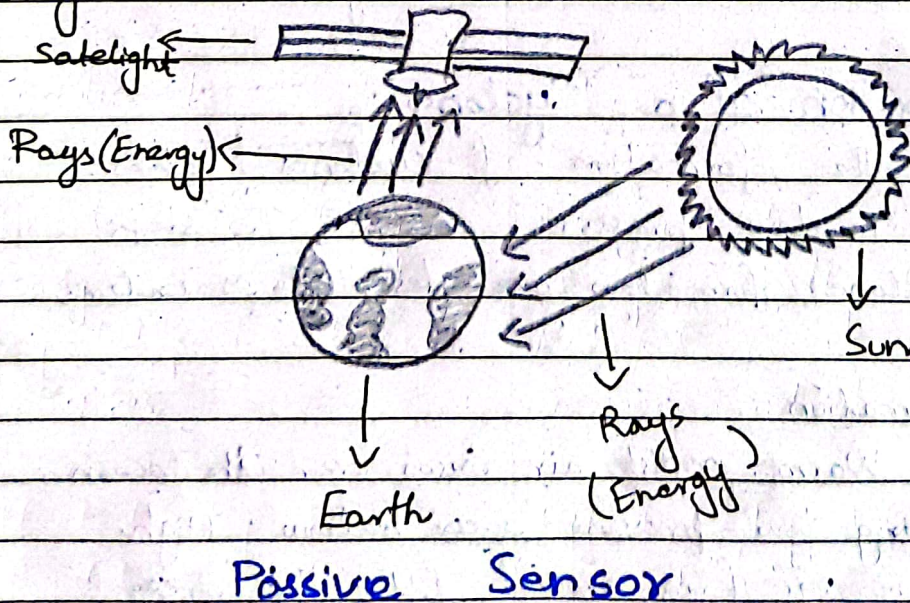 Satelight
Rays (Energy)
Sun
Rays
(Energy)
Earth
Passive Sensor